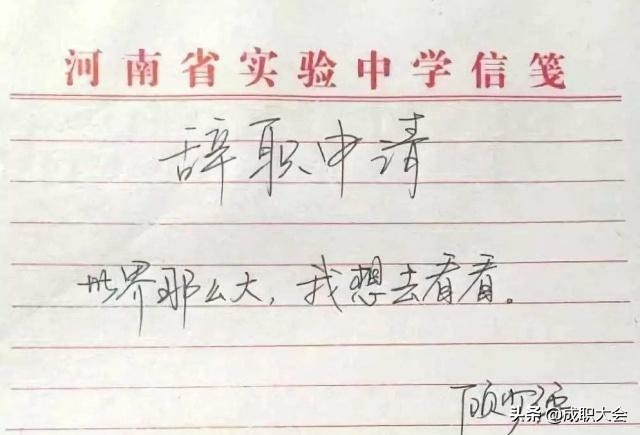 河南省实验中学信笺
辞职申请
世界那么大，我想去看看。
顾
头条@成职大会